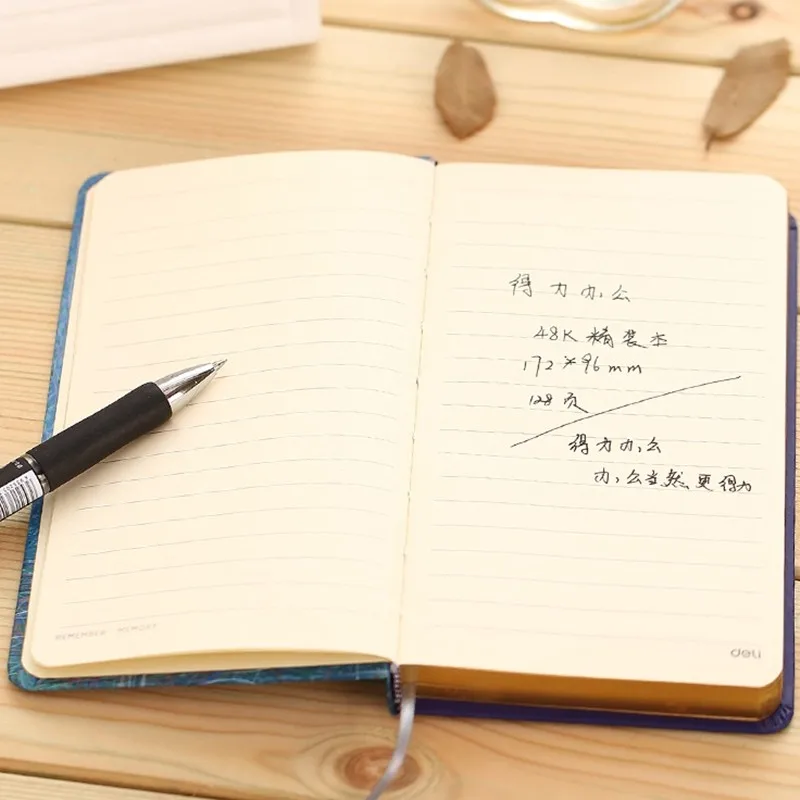 得力办公
48K 精装本
172*96mm
128页
得力办公
办公当然更得力
REMEMBER MEMORY
deli